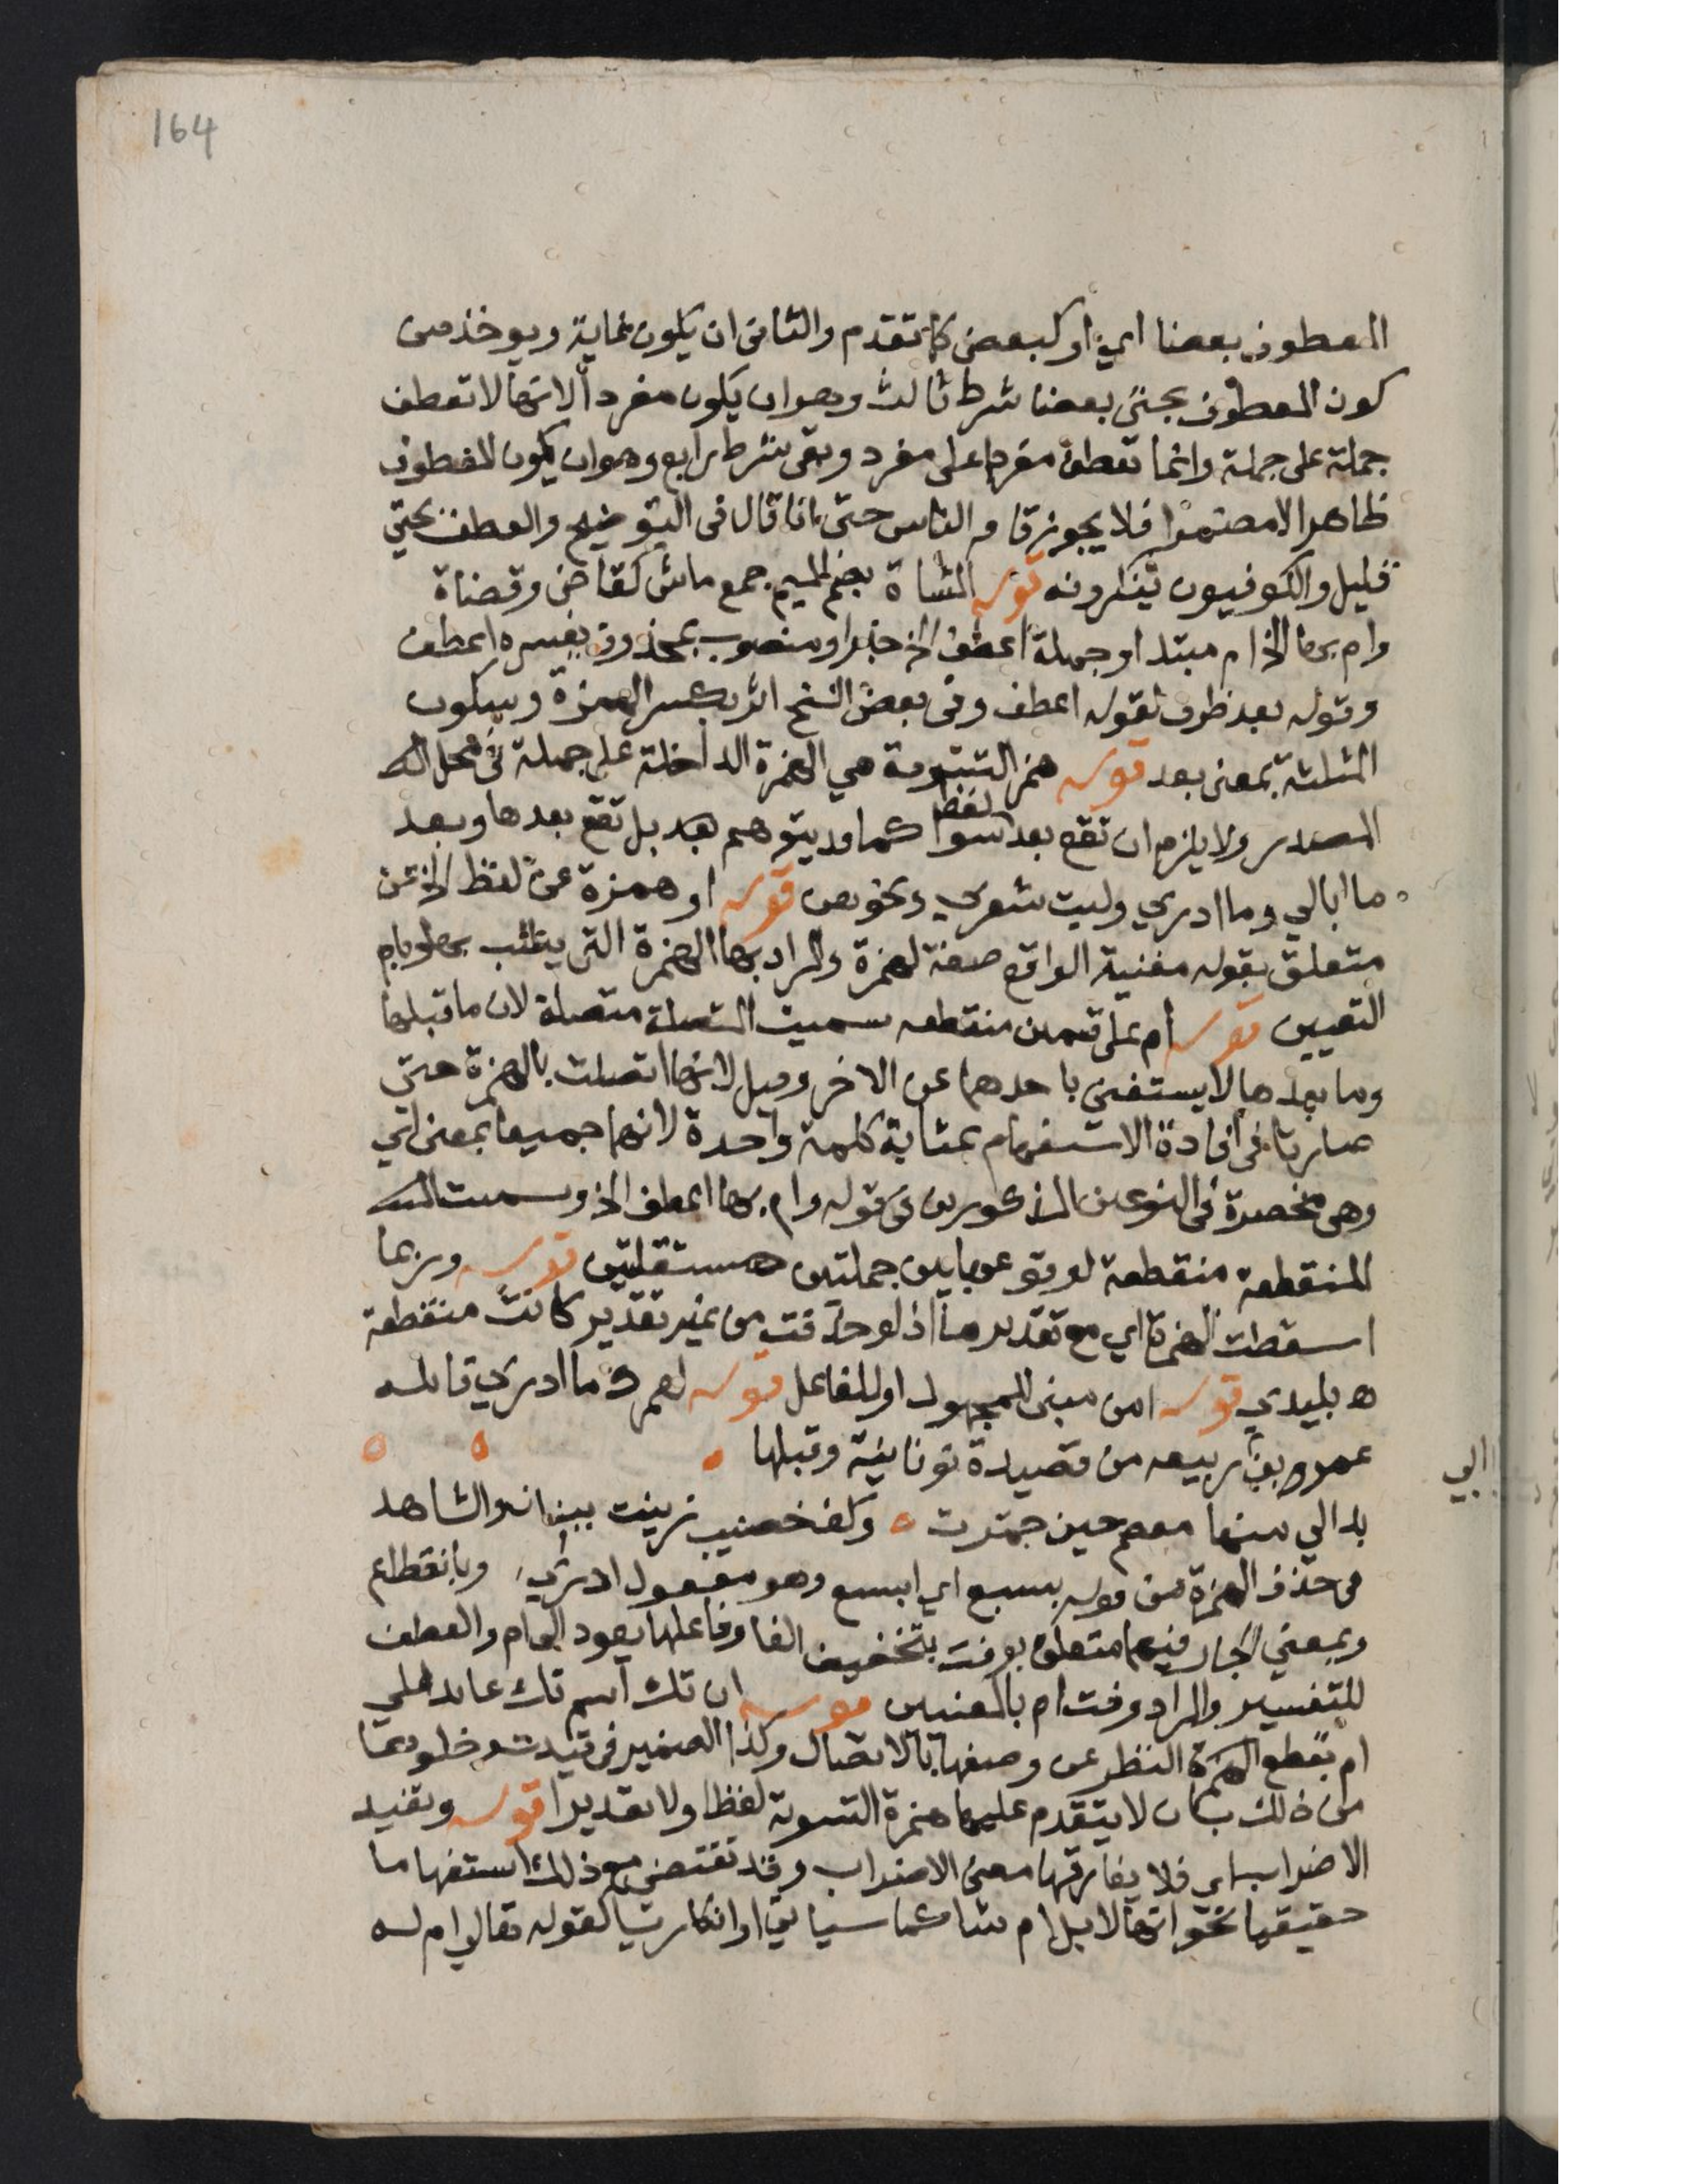 164
المعطوف بعضا اي او كبعض كما تقدم والثاني ان يكون غاية ويوخذ من
كون المعطوف بحتى بعضا شرط ثالث وهو ان يكون مفردا لانها لا تعطف
جملة على جملة وانما تعطف مفردا على مفرد وبقي شرط رابع وهو ان يكون المعطوف
ظاهرا لا مضمرا فلا يجوز قام الناس حتى انا قال في التوضيح والعطف بحتى
قليل والكوفيون ينكرونه قوله المشاة بضم الميم جمع ماش كقاض وقضاة
وام بها الخ ام مبتدا وجملة اعطف الخ خبر او منصوب بمحذوف يفسره اعطف
وقوله بعد ظرف لقوله اعطف وفي بعض النسخ اثر بكسر الهمزة وسكون
المثلثة بمعنى بعد قوله همز التسوية هي الهمزة الداخلة على جملة في محل
المصدر ولا يلزم ان تقع بعد لفظ سوا كما قد يتوهم بل تقع بعدها وبعد
ما ابالي وما ادري وليت شعري ونحوهن قوله او همزة عن لفظ الخ عن
متعلق بقوله مغنية الواقع صفة لهمزة والمراد بها الهمزة التي يطلب بها وبام
التعيين قوله ام على قسمين منقطعه سميت المتصلة متصلة لان ما قبلها
وما بعدها لا يستغنى باحدهما عن الاخر وقيل لانها اتصلت بالهمزة حتى
صارتا في افادة الاستفهام بمثابة كلمة واحدة لانهما جميعا بمعنى اي
وهي منحصرة في النوعين المذكورين في قوله وام بها اعطف الخ وسميت
المنقطعة منقطعة لوقوعها بين جملتين مستقلتين قوله وربما
اسقطت الهمزة اي مع تقديرها اذ لو حذفت من غير تقدير كانت منقطعة
ه بليدي قوله امن مبنى للمجهول او للفاعل قوله لعمرك ما ادري قائله
عمرو بن ربيعه من قصيدة نونانية وقبلها
ابي
بدا لي منها معصم حين جمرت وكف خضيب زينت ببنان والشاهد
في حذف الهمزة من قوله بسبع اي ابسبع وهو مفعول ادري وبانقطاع
وبمعنى الجار فيهما متعلق بوفت بتخفيف الفا وفاعلها يعود الى ام والعطف
للتفسير والمراد وفت ام بالمعنيين قوله ان تك اسم تك عايد على
ام بقطع النظر عن وصفها بالاتصال وكذا الضمير في قيدت وخلوها
من ذلك بان لا يتقدم عليها همزة التسوية لفظا ولا تقديرا قوله وتفيد
الاضراب اي فلا يفارقها معنى الاضراب وقد تقتضي مع ذلك استفهاما
حقيقيا نحو انها لابل ام شا كما سياتي او انكاريا كقوله تعالى ام له